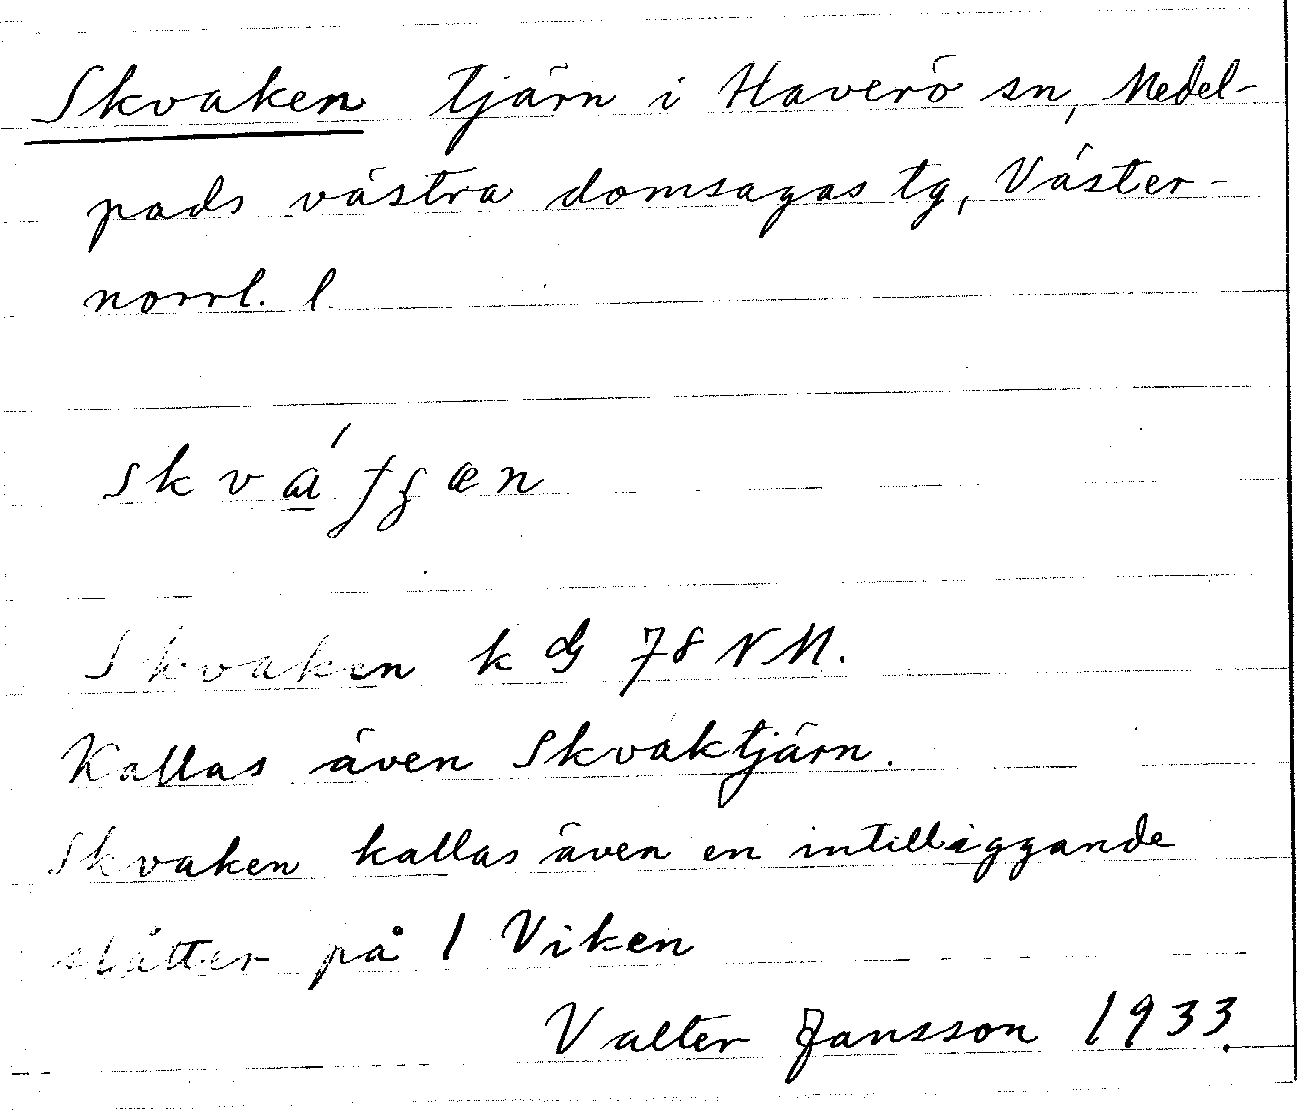 Skvaken tjärn i Haverö sn, Medel-
pads västra domsagas tg, Väster-
norrl. l
Skvaken k G 78 NM.
Kallas även Skvaktjärn.
Skvaken kallas även en intilliggande
slåtter på 1 Viken
Valter Jansson 1933.